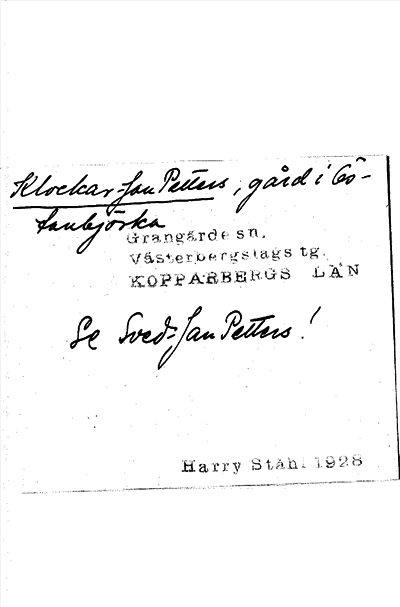 Klockar-Jan Petters, gård i Gö-
tanbjörka
Grangärde sn.
Västerbergslags tg.
KOPPARBERGS LÄN
Se Sved-Jan Petters!
Harry Ståhl 1928